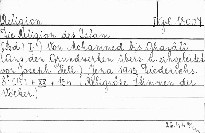 Religion
Die Religion des Islam
(Bd) I. Von Mohammed bis Ghazâlî
(Aus den Grundwerken übers. u. eingeleitet
von Joseph Hell) Jena 1915 Diederichs.
8° (
(Religiöse Stimmen der
Völker.)